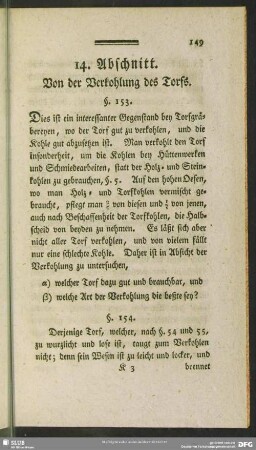 149
14. Abschnitt.
Von der Verkohlung des Torfs.
§. 153.
Dies ist ein interessanter Gegenstand bey Torfgrä-
bereyen, wo der Torf gut zu verkohlen, und die
Kohle gut abzusetzen ist. Man verkohlt den Torf
insonderheit, um die Kohlen bey Hüttenwerken
und Schmiedearbeiten, statt der Holz- und Stein-
kohlen zu gebrauchen, §. 5. Auf den hohen Oefen,
wo man Holz- und Torfkohlen vermischt ge-
braucht, pflegt man von diesen und von jenen,
auch nach Beschaffenheit der Torfkohlen, die Halb-
scheid von beyden zu nehmen. Es läßt sich aber
nicht aller Torf verkohlen, und von vielem fällt
nur eine schlechte Kohle. Daher ist in Absicht der
Verkohlung zu untersuchen,
α) welcher Torf dazu gut und brauchbar, und
β) welche Art der Verkohlung die beßte sey?
§. 154.
Derjenige Torf, welcher, nach §. 54 und 55,
zu wurzlicht und lose ist, taugt zum Verkohlen
nicht; denn sein Wesen ist zu leicht und locker, und
K 3 brennet
SLUB
DFG